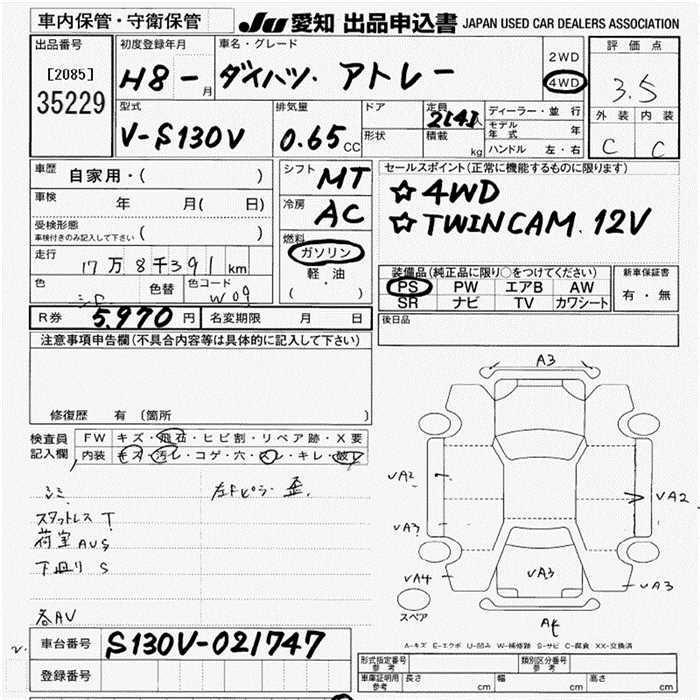 車内保管・守衛保管 JU 愛知 出品申込書 JAPAN USED CAR DEALERS ASSOCIATION
出品番号 初度登録年月 車名・グレード 2WD 評価点
[2085] H8 - 月 ダイハツ・アトレー 4WD 3.5
35229 外装 内装
型式 排気量 ドア 定員 ディーラー・並行 C C
V-S130V 0.65 CC 形状 積載 2(4)人 kg モデル年式 年
ハンドル 左・右
車歴 自家用・( ) シフト MT セールスポイント(正常に機能するものに限ります)
車検 年 月( 日) 冷房 AC ☆ 4WD
受検形態 ( ) ☆ TWINCAM. 12V
車検付きのみ記入して下さい 燃料
走行 17万8千391 km ガソリン 装備品(純正品に限り○をつけてください) 新車保証書
色 色替 色コード W09 軽・油 PS PW エアB AW 有・無
( ) SR ナビ TV カワシート
R券 5,970 円 名変期限 月 日 後日品
注意事項申告欄(不具合内容等は具体的に記入して下さい)
修復歴 有 (箇所 )
検査員 FW キズ・飛石・ヒビ割・リペア跡・X要
記入欄 内装 キズ・汚レ・コゲ・穴・スレ・キレ・破レ
シミ 左Fピラー歪.
スタットレス T
荷室 AUS
下廻り S
各AU
A3
√A2 √A2
√A3
√A4 √A3 √A3
スペア A4
A-キズ E-エクボ U-凹み W-補修跡 S-サビ C-腐食 XX-交換済
車台番号 S130V-021747
登録番号
形式指定番号 参考 類別区分番号 参考
車庫証明用 参考 長さ cm 幅 cm 高さ cm